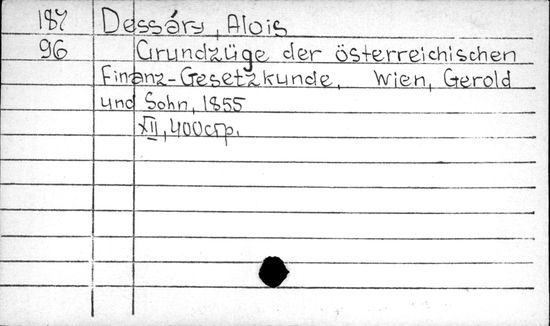 187 Dessáry, Alois
96 Grundzüge der österreichischen
Finanz-Gesetzkunde. Wien, Gerold
und Sohn, 1855
XII, 400стр.